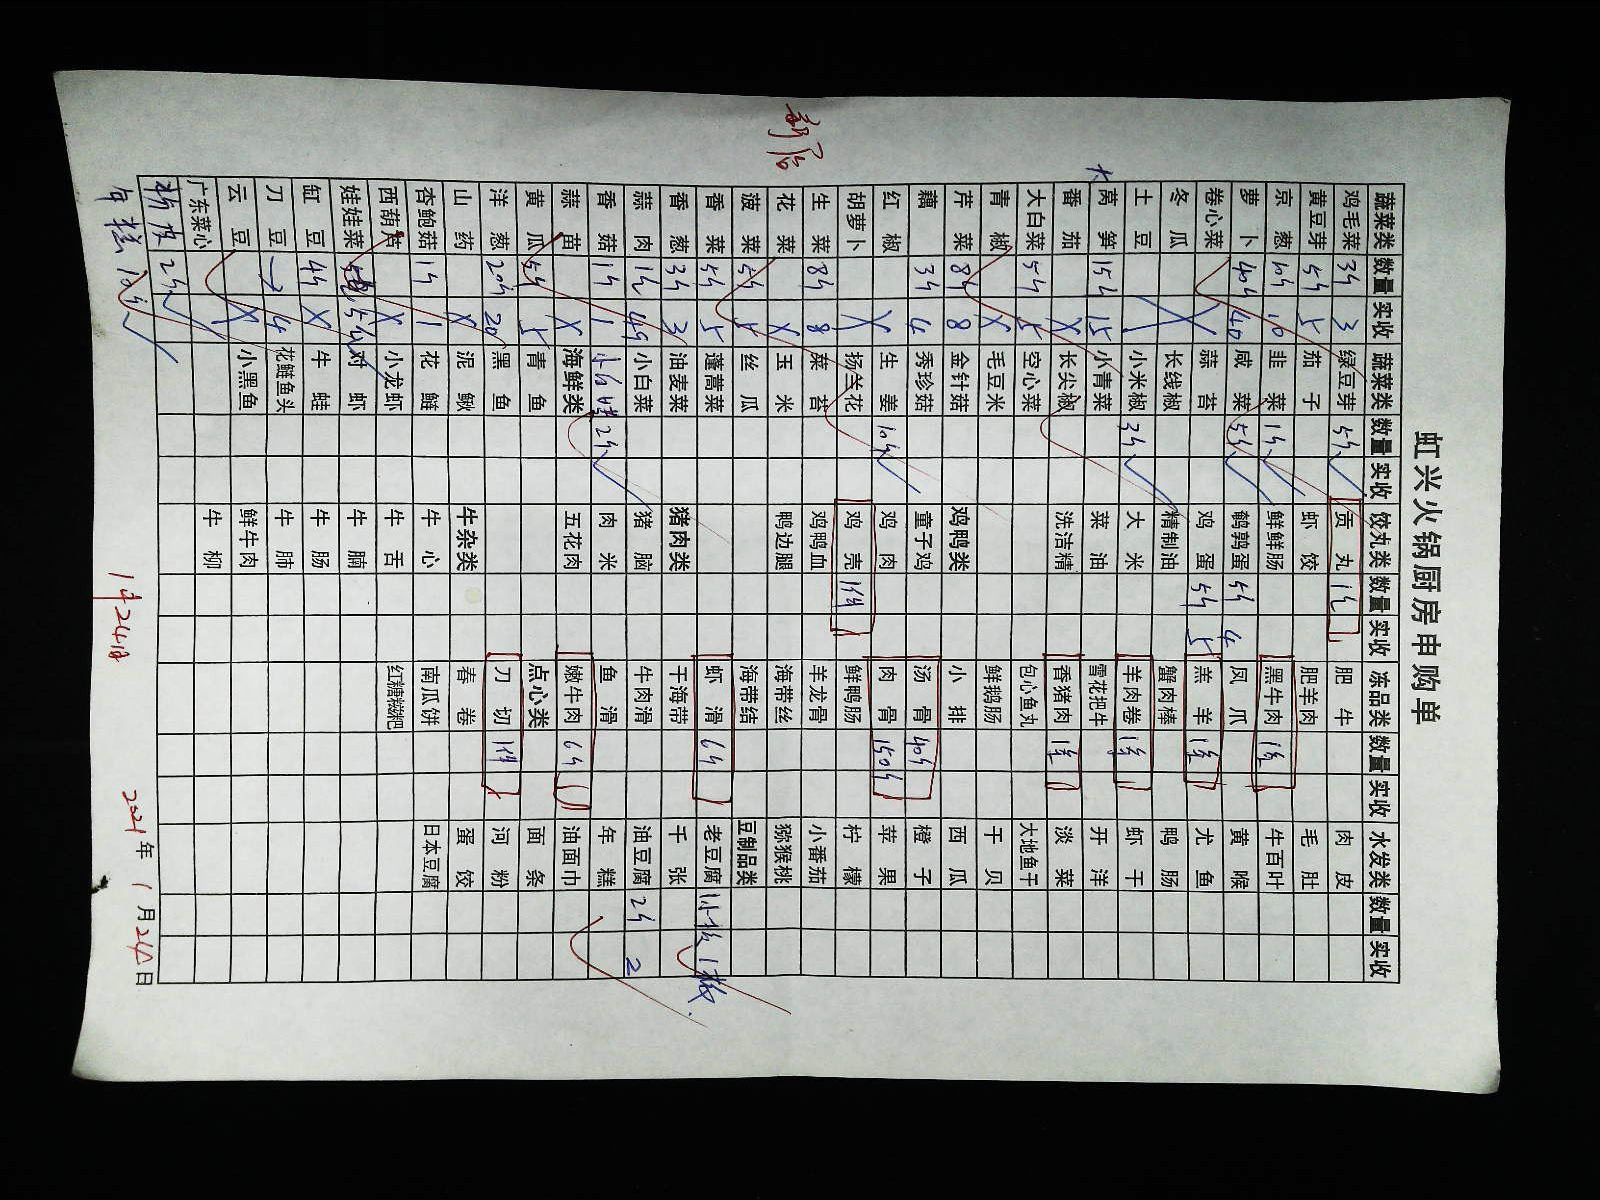 虹兴火锅厨房申购单
蔬菜类 数量 实收 蔬菜类 数量 实收 饺丸类 数量 实收 冻品类 数量 实收 水发类 数量 实收
鸡毛菜 3斤 3 绿豆芽 5斤 贡丸 1包 肥牛 肉皮
黄豆芽 5斤 5 茄子 虾饺 肥羊肉 毛肚
京葱 10斤 10 韭菜 1斤 鲜鲜肠 黑牛肉 1箱 牛百叶
萝卜 40斤 40 咸菜 5斤 鹌鹑蛋 5斤 4 凤爪 黄喉
卷心菜 蒜苔 鸡蛋 5斤 5 羔羊 1箱 尤鱼
冬瓜 X 长线椒 精制油 蟹肉棒 鸭肠
土豆 小米椒 3斤 大米 羊肉卷 1箱 虾干
莴笋 15斤 15 小青菜 菜油 雪花把牛 开洋
番茄 X 长尖椒 洗洁精 香猪肉 1箱 淡菜
大白菜 5斤 5 空心菜 包心鱼丸 大地鱼干
青椒 X 毛豆米 鲜鹅肠 干贝
芹菜 8斤 8 金针菇 鸡鸭类 小排 西瓜
藕 3斤 4 秀珍菇 童子鸡 汤骨 40斤 橙子
红椒 生姜 10斤 鸡肉 肉骨 150斤 苹果
胡萝卜 X 扬兰花 鸡壳 1件 鲜鸭肠 柠檬
生菜 8斤 8 菜苔 鸡鸭血 羊龙骨 小番茄
花菜 X 玉米 鸭边腿 海带丝 猕猴桃
菠菜 5斤 5 丝瓜 海带结 豆制品类
香菜 5斤 5 蓬蒿菜 虾滑 6斤 老豆腐 1小板 1板
香葱 3斤 3 油麦菜 猪肉类 干海带 千张
蒜肉 1包 小白菜 猪脑 牛肉滑 油豆腐 2斤 2
香菇 1斤 1 2斤 肉米 鱼滑 年糕
蒜苗 X 海鲜类 五花肉 嫩牛肉 6斤 油面巾
黄瓜 5斤 5 青鱼 点心类 面条
洋葱 20斤 20 黑鱼 刀切 1件 河粉
山药 X 泥鳅 牛杂类 春卷 蛋饺
杏鲍菇 1斤 1 花鲢 牛心 南瓜饼 日本豆腐
西葫芦 X 小龙虾 牛舌 红糖糍粑
娃娃菜 对虾 牛腩
缸豆 4斤 X 牛蛙 牛肠
刀豆 4 花鲢鱼头 牛肺
云豆 X 小黑鱼 鲜牛肉
广东菜心 牛柳
2斤
年糕 10斤
新店
1月24日
2021年1月24日